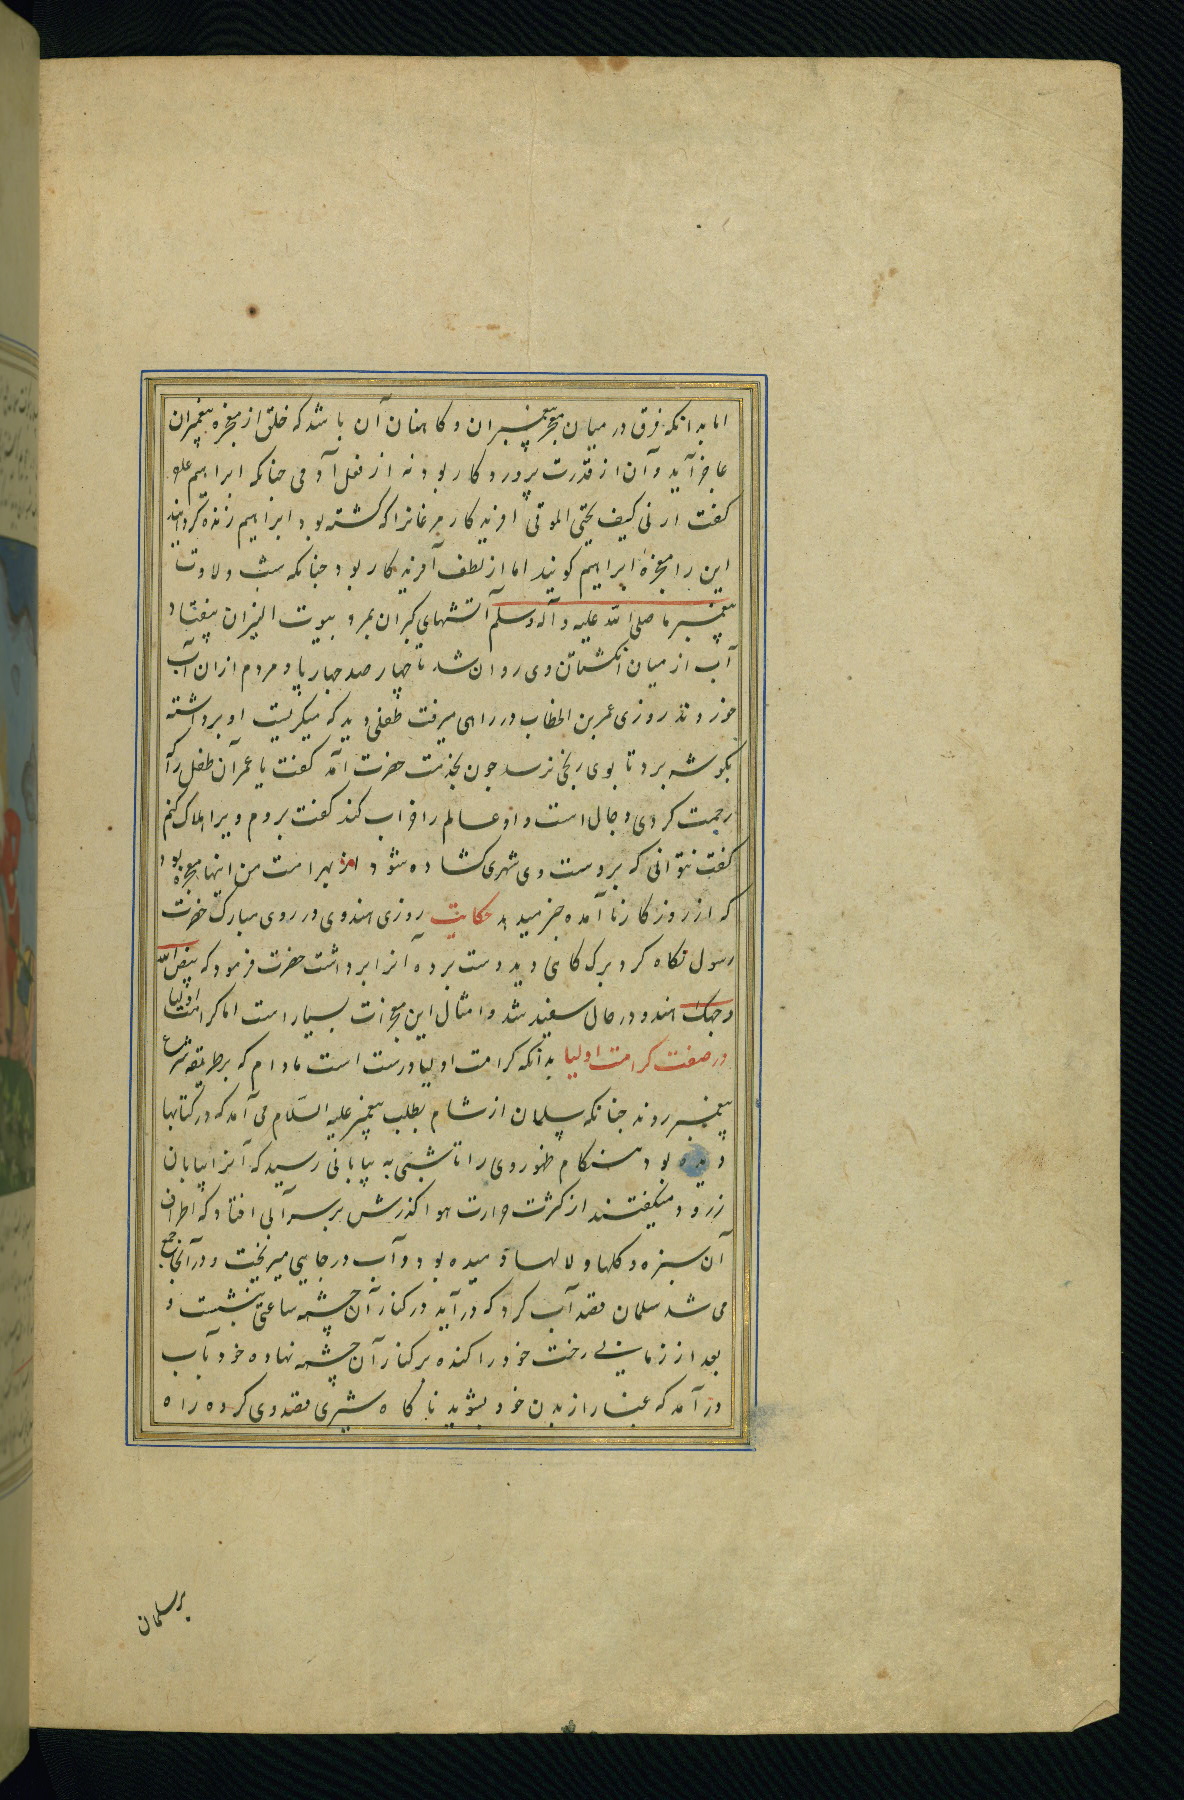 اما بدانکه فرق در میان معجزه پیغمبران و کاهنان آن باشد که خلق از معجزه پیغمبران
عاجز آید و آن از قدرت پروردکار بود نه از فعل آدمی جنانکه ابراهیم علیه
کفت ارنی کیف یحیی الموتی افریدکار مرغانرا که کشته بود ابراهیم زنده کردانید
این را معجزهٔ ابراهیم کویند اما از لطف آفریدکار بود جنانکه شب ولادت
پیغمبر ما صلی الله علیه و آله وسلم آتشهای کبران بمرد بیوت النیران بیفتاد
آب از میان انکشتان وی روان شد تا جهار صد جهارپا و مردم ازان آب
خوردند روزی عمر بن الخطاب در راهی میرفت طفلی دید که میکریست او برداشته
بکوشه برد تا بوی رنجی نرسد جون بخدمت حضرت آمد کفت یا عمر آن طفل را که
رحمت کردی دجال است و او عالم را خراب کند کفت بروم ویرا هلاک کنم
کفت نتوانی که بر دست وی شهری کشاده شود از بهر امت من اینها معجزه بود
که از روزکار نا آمده خبر میدید حکایت روزی هندوی در روی مبارک حضرت
رسول نکاه کرد برک کاهی دید دست برده آنرا برداشت حضرت فرمود که بیض الله
وجهک هندو در حال سفید شد و امثال این معجزات بسیار است اما کرامت اولیا
در صفت کرامت اولیا بدانکه کرامت اولیا درست است مادام که بر طریقه شرع
پیغمبر روند جنانکه سلمان از شام بطلب پیغمبر علیه السلام می آمد که در کتابها
دیده بود هنکام ظهور وی را تا شبی به بیابانی رسید که آنرا بیابان
زرود میکفتند از کثرت حرارت هوا کذرش بر سر آبی افتاد که اطراف
آن سبزه و کلها و لالها دمیده بود و آب در جایی میریخت و در آنجا جمع
می شد سلمان قصد آب کرد که درآید در کنار آن چشمه ساعتی بنشست و
بعد از زمانی رخت خود را کنده بر کنار آن چشمه نهاده خود بآب
درآمد که غبار از بدن خود بشوید ناکاه شیری قصد وی کرده راه
بر سلمان